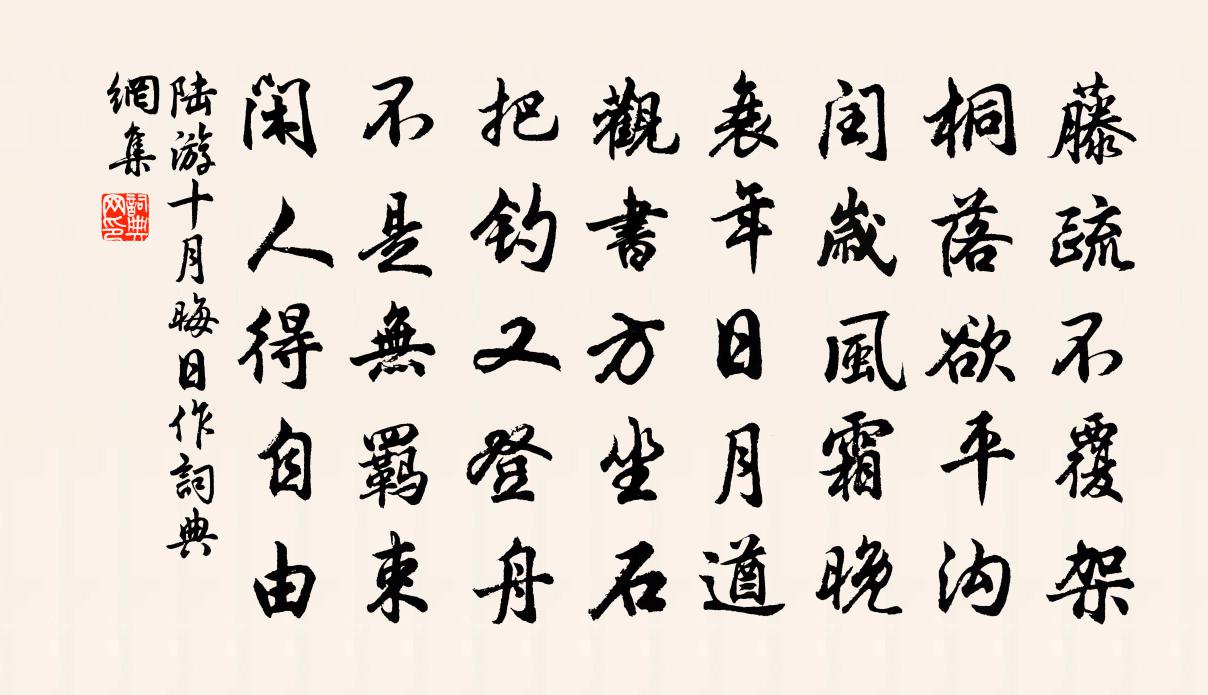 藤疏不覆架
桐落欲平沟
闰歲風霜晚
衰年日月遒
觀書方坐石
把钓又登舟
不是無羈束
闲人得自由
陆游十月晦日作詞典
網集
詞典网印